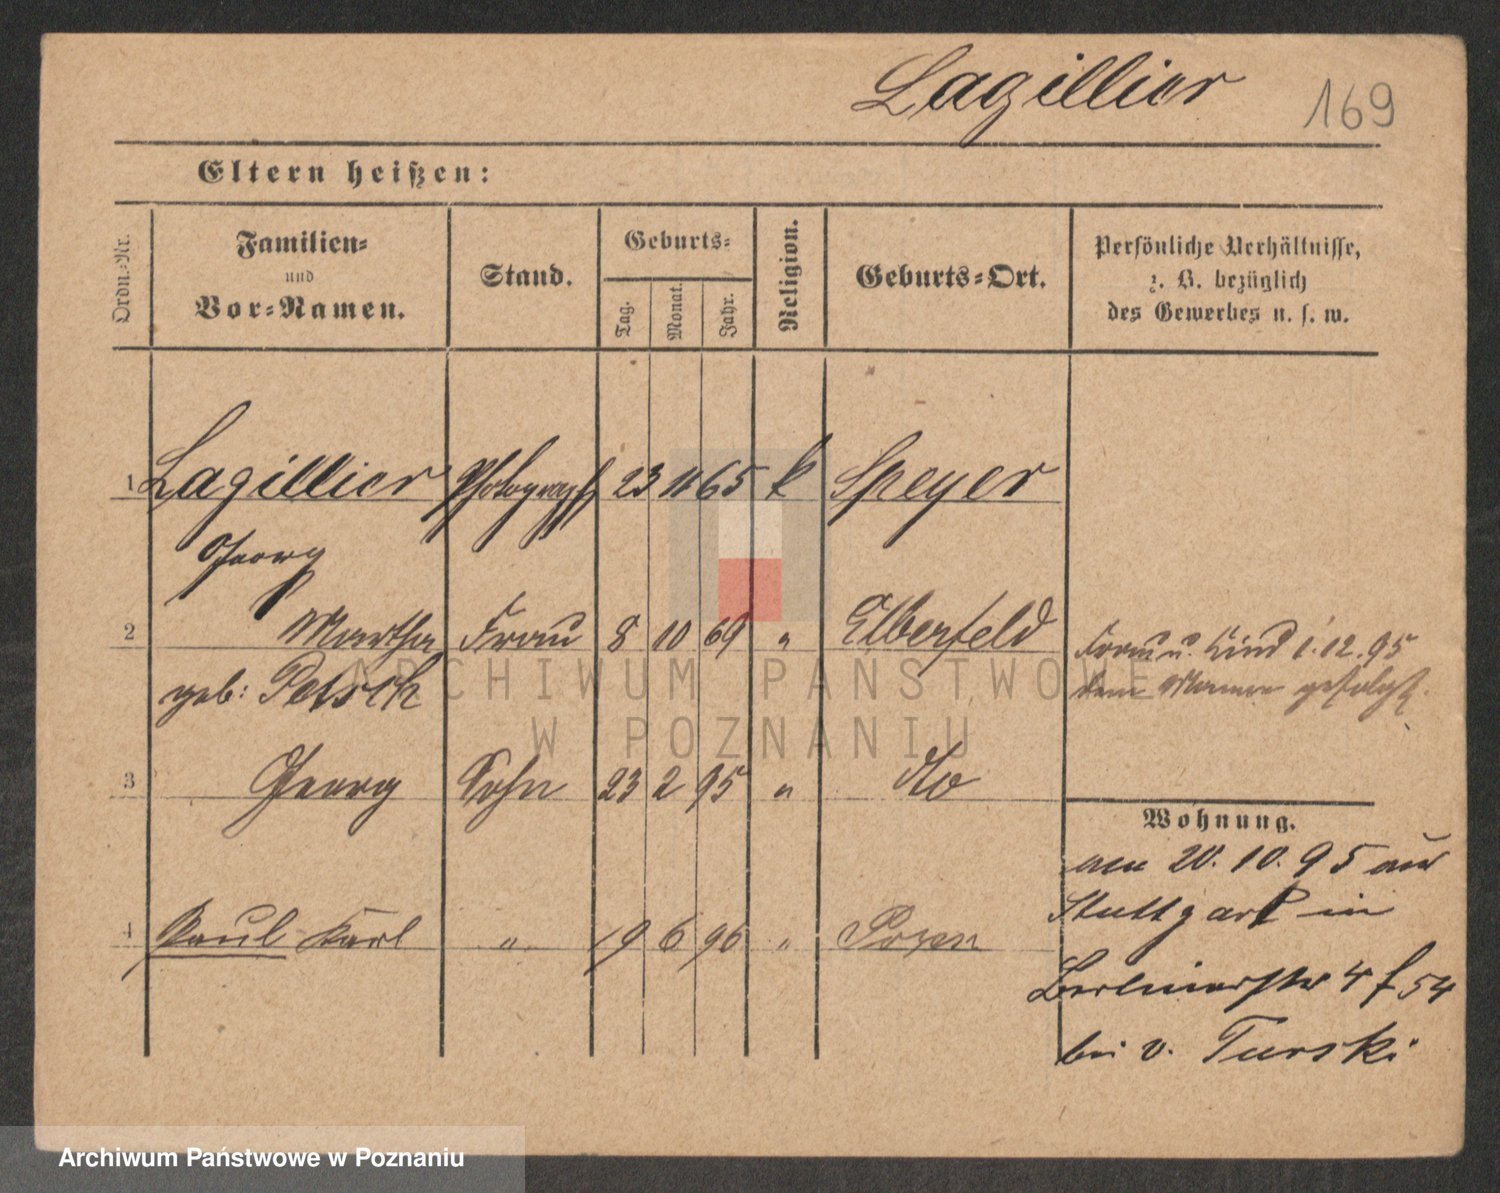 Lagillier 169
Eltern heißen:
Ordn.-Nr.
Familien-
und
Vor-Namen.
Stand.
Geburts-
Tag.
Monat.
Jahr.
Religion.
Geburts-Ort.
Persönliche Verhältnisse,
z. B. bezüglich
des Gewerbes u. s. w.
1 Lagillier Photograph 23 11 65 k Speyer
Georg
2 Martha Frau 8 10 69 " Elberfeld
geb: Petsch
Frau u. Kind 1.12.95
dem Manne gefolgt.
3 Georg Sohn 23 2 95 " dto
4 Paul Karl " 19 6 96 " Posen
Wohnung.
am 20.10.95 aus
Stuttgart in
Berlinerstr 4 f 54
bei v. Turski
ARCHIWUM PAŃSTWOWE
W POZNANIU
Archiwum Państwowe w Poznaniu